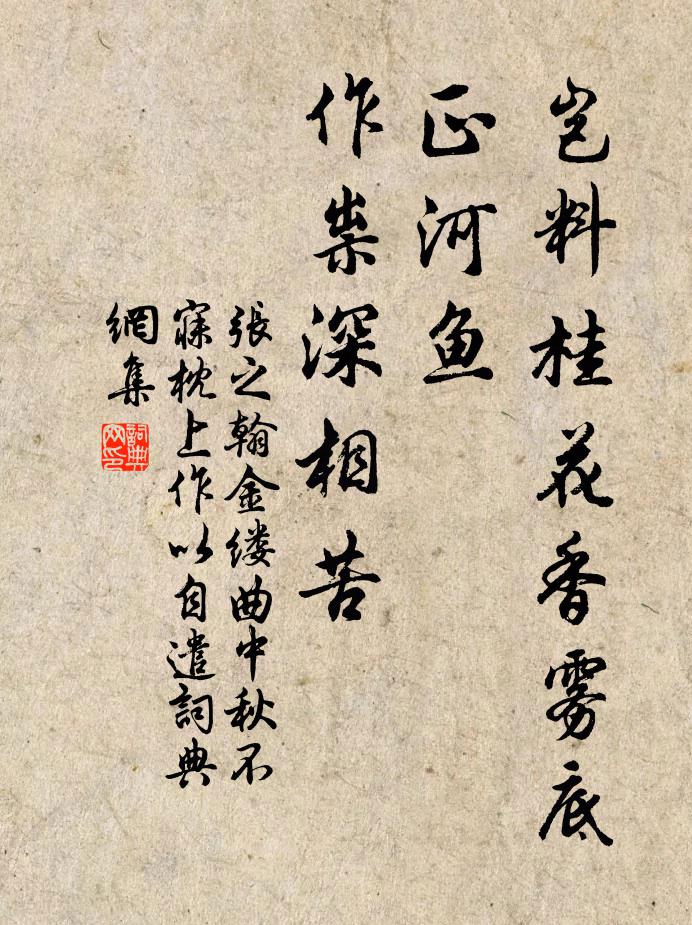 岂料桂花香雾底
正河鱼
作祟深相苦
張之翰金缕曲中秋不
寐枕上作以自遣詞典
網集
詞典
网印